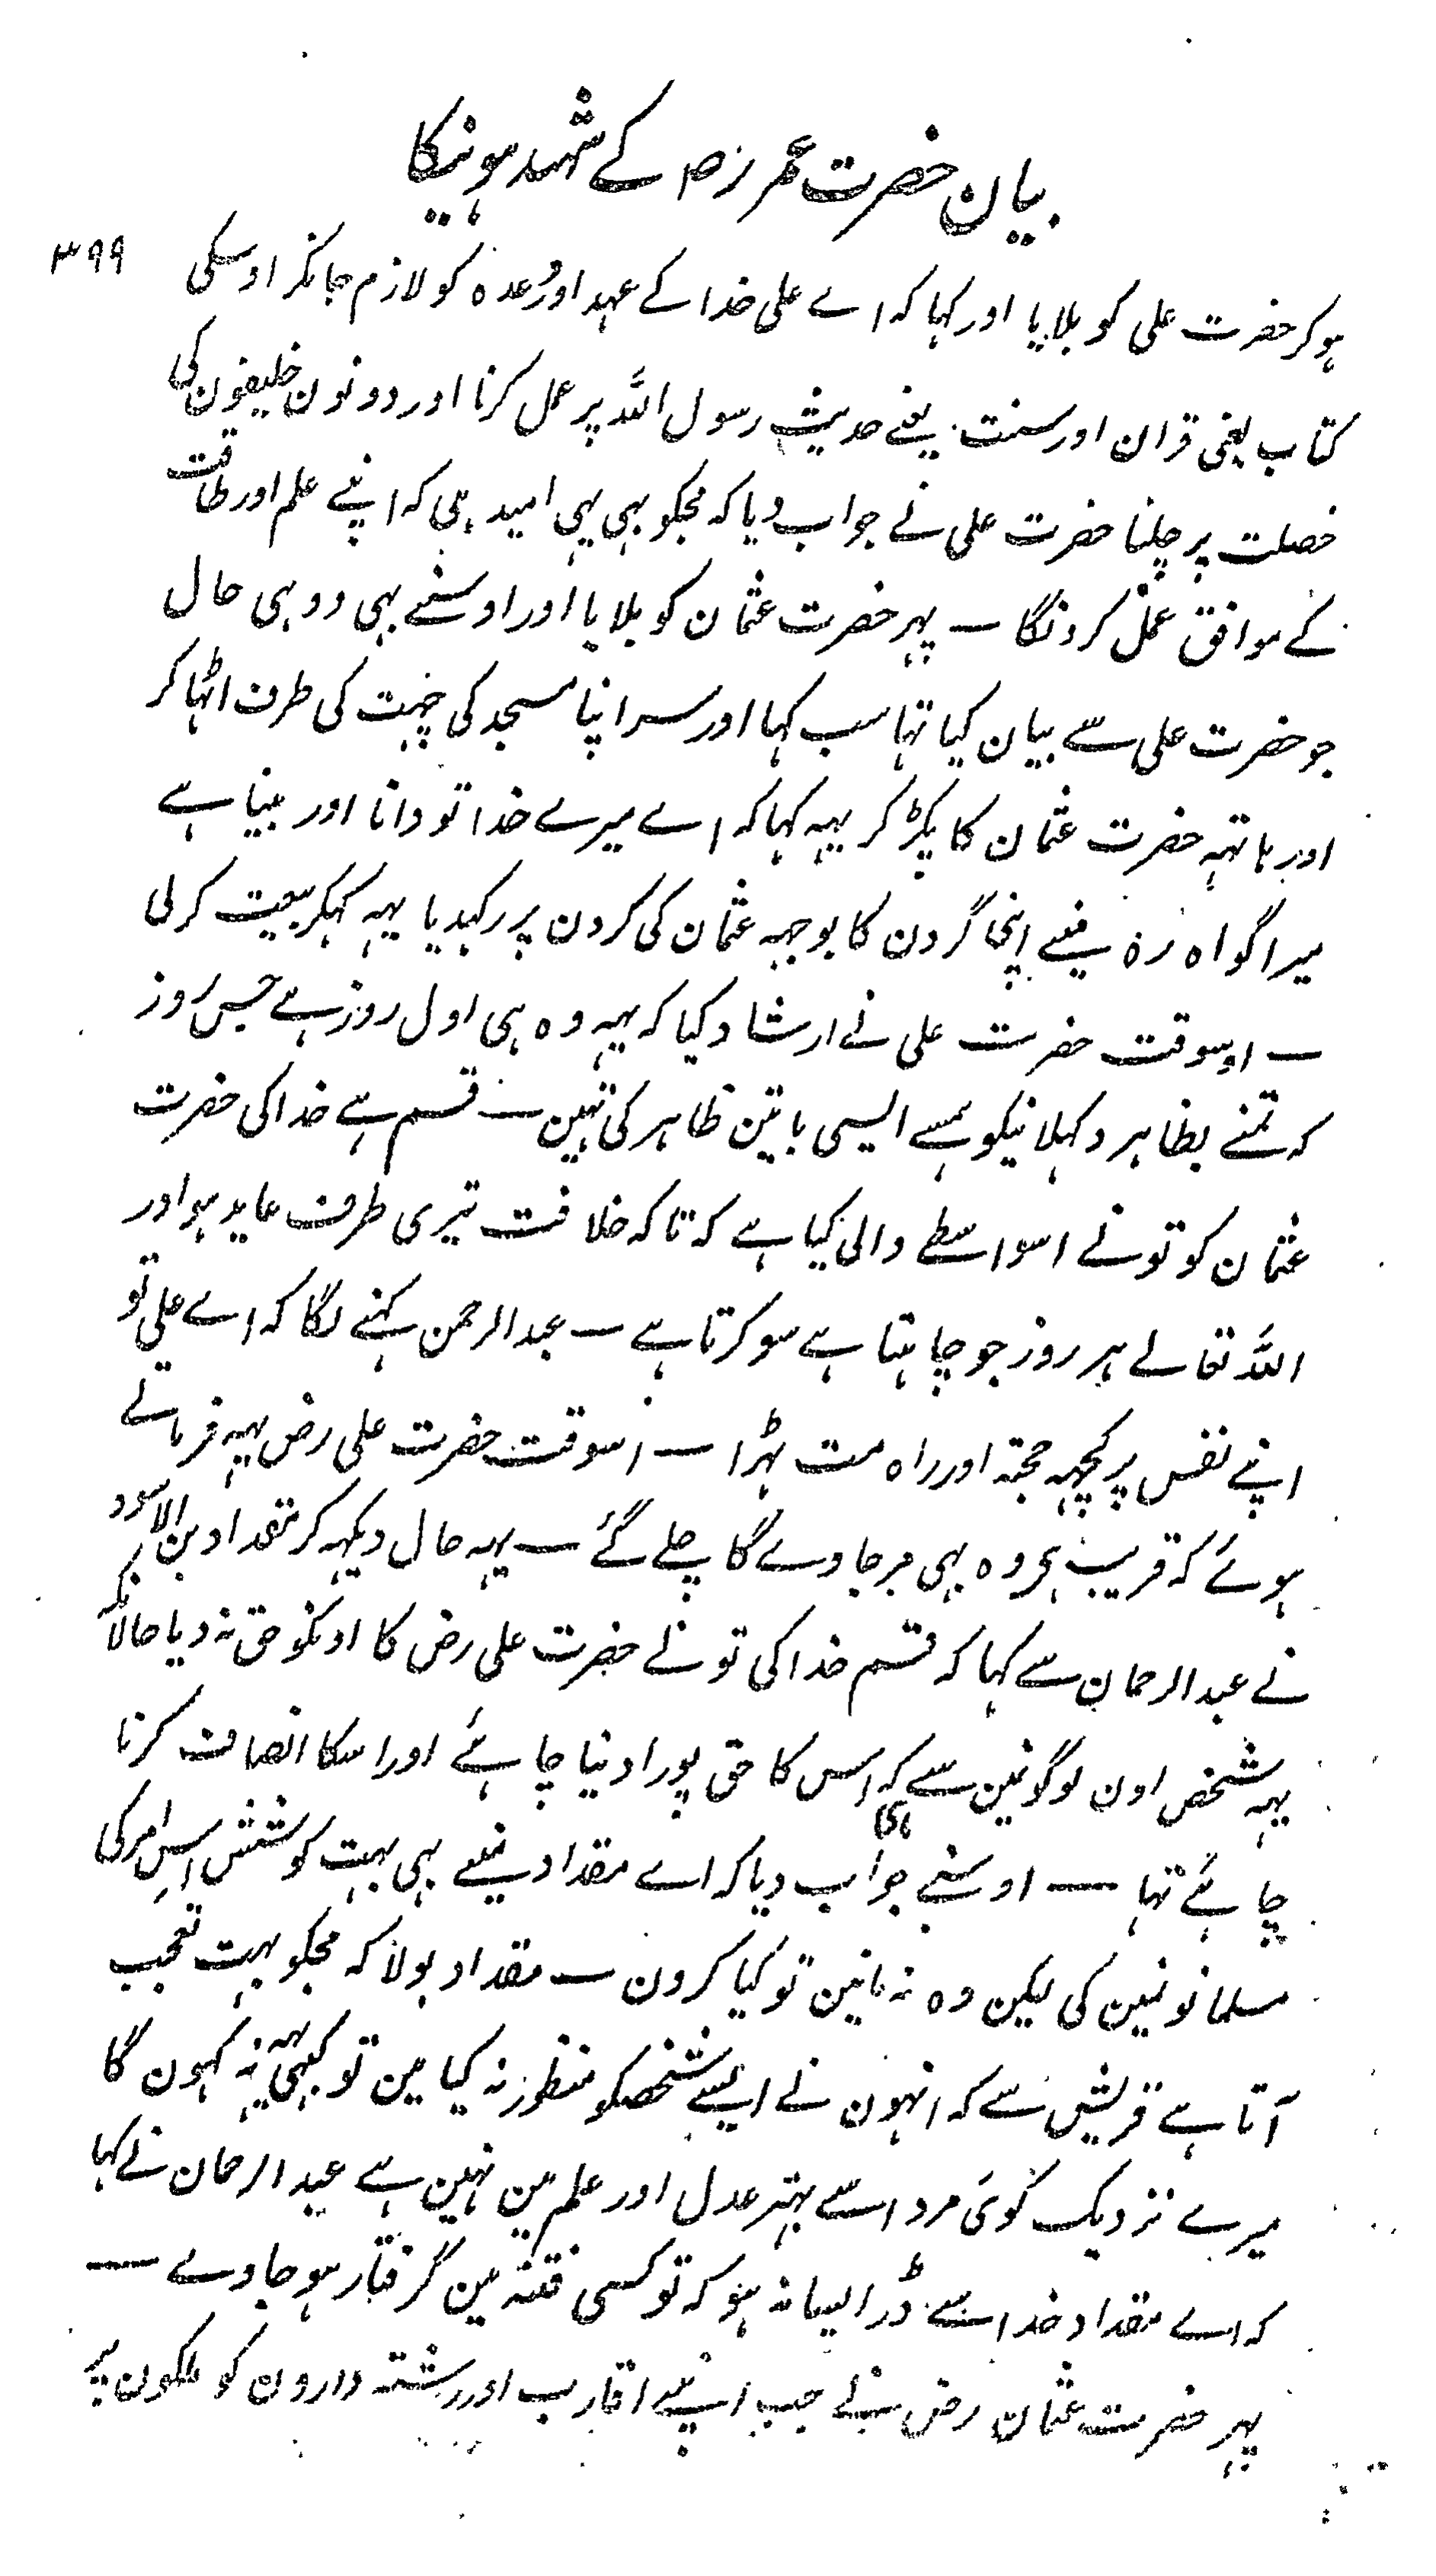 بیان حضرت عمر رض کے شہید ہونیکا
۳۹۹
ہوکر حضرت علی کو بلایا اور کہا کہ اے علی خدا کے عہد اور وعدہ کو لازم جانکر اوسکی
کتاب یعنی قران اور سنت یعنے حدیث رسول اللہ پر عمل کرنا اور دونون خلیفون کی
خصلت پر چلنا حضرت علی نے جواب دیا کہ مجکو بہی یہی امید ہی کہ اپنے علم اور طاقت
کے موافق عمل کرونگا — پہر حضرت عثمان کو بلایا اور اوسنے بہی وہی حال
جو حضرت علی سے بیان کیا تہا سب کہا اور سر اپنا مسجد کی چہت کی طرف اٹہا کر
اور ہاتہہ حضرت عثمان کا پکڑ کر یہہ کہا کہ اے میرے خدا تو دانا اور بینا ہے
میرا گواہ رہ مینے اپنی گردن کا بوجہہ عثمان کی گردن پر رکہدیا یہہ کہکر بیعت کرلی
— اوسوقت حضرت علی نے ارشاد کیا کہ یہہ وہ ہی اول روز ہے جس روز
کہ تمنے بظاہر دکہلانیکو ہمسے ایسی باتین ظاہر کی تہین — قسم ہے خدا کی حضرت
عثمان کو تونے اسواسطے والی کیا ہے کہ تا کہ خلافت تیری طرف عاید ہو اور
اللہ تعالے ہر روز جو چاہتا ہے سو کرتا ہے — عبد الرحمن کہنے لگا کہ اے علی تو
اپنے نفس پر کچہہ حجتہ اور راہ مت ٹہرا — اسوقت حضرت علی رض یہہ فرماتے
ہوئے کہ قریب ہی وہ بہی مرجاوے گا چلے گئے — یہہ حال دیکہہ کر مقداد بن الاسود
نے عبد الرحمان سے کہا کہ قسم خدا کی تونے حضرت علی رض کا اونکو حق نہ دیا حالانکہ
یہہ شخص اون لوگونمین سے ہی کہ اس کا حق پورا دنیا چاہئے اور اسکا انصاف کرنا
چاہئے تہا — اوسنے جواب دیا کہ اے مقداد مینے بہی بہت کوشش اس امر کی
مسلمانونمین کی لیکن وہ نہ مانین تو کیا کرون — مقداد بولا کہ مجکو بہت تعجب
آتا ہے قریش سے کہ انہون نے ایسے شخصکو منظور نہ کیا مین تو کبہی یہہ نہ کہون گا
میرے نزدیک کوئی مرد اسے بہتر عدل اور علم مین نہین ہے عبد الرحمان نے کہا
کہ اے مقداد خدا سے ڈر ایسا نہ ہو کہ تو کسی فتنہ مین گرفتار ہو جاوے —
پہر حضرت عثمان رض نے جب اپنے اقارب اور رشتہ دارون کو ملکون پر